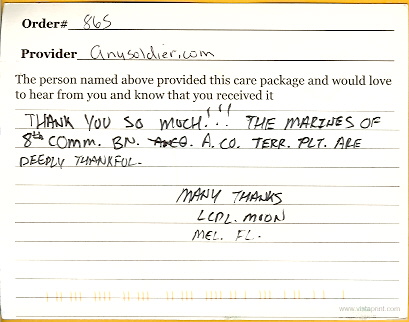 Order# 865
Provider anysoldier.com
The person named above provided this care package and would love
to hear from you and know that you received it
THANK YOU SO MUCH!!! THE MARINES OF
8th COMM. BN. A. CO. TERR. PLT. ARE
DEEPLY THANKFUL.
MANY THANKS
LCPL. MOON
MEL. FL.
www.vistaprint.com